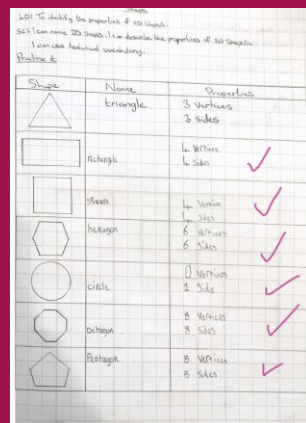 Shape
LO: To identify the properties of 2D shapes.
SC: I can name 2D shapes. I can describe the properties of 2D shapes.
I can use technical vocabulary.
Practice it:
Shape Name Properties
triangle 3 vertices
3 sides
rectangle 4 Vertices
4 Sides
square 4 Vertices
4 sides
hexagon 6 vertices
6 sides
circle 0 Vertices
1 Side
octagon 8 Vertices
8 sides
Pentagon 5 Vertices
5 sides